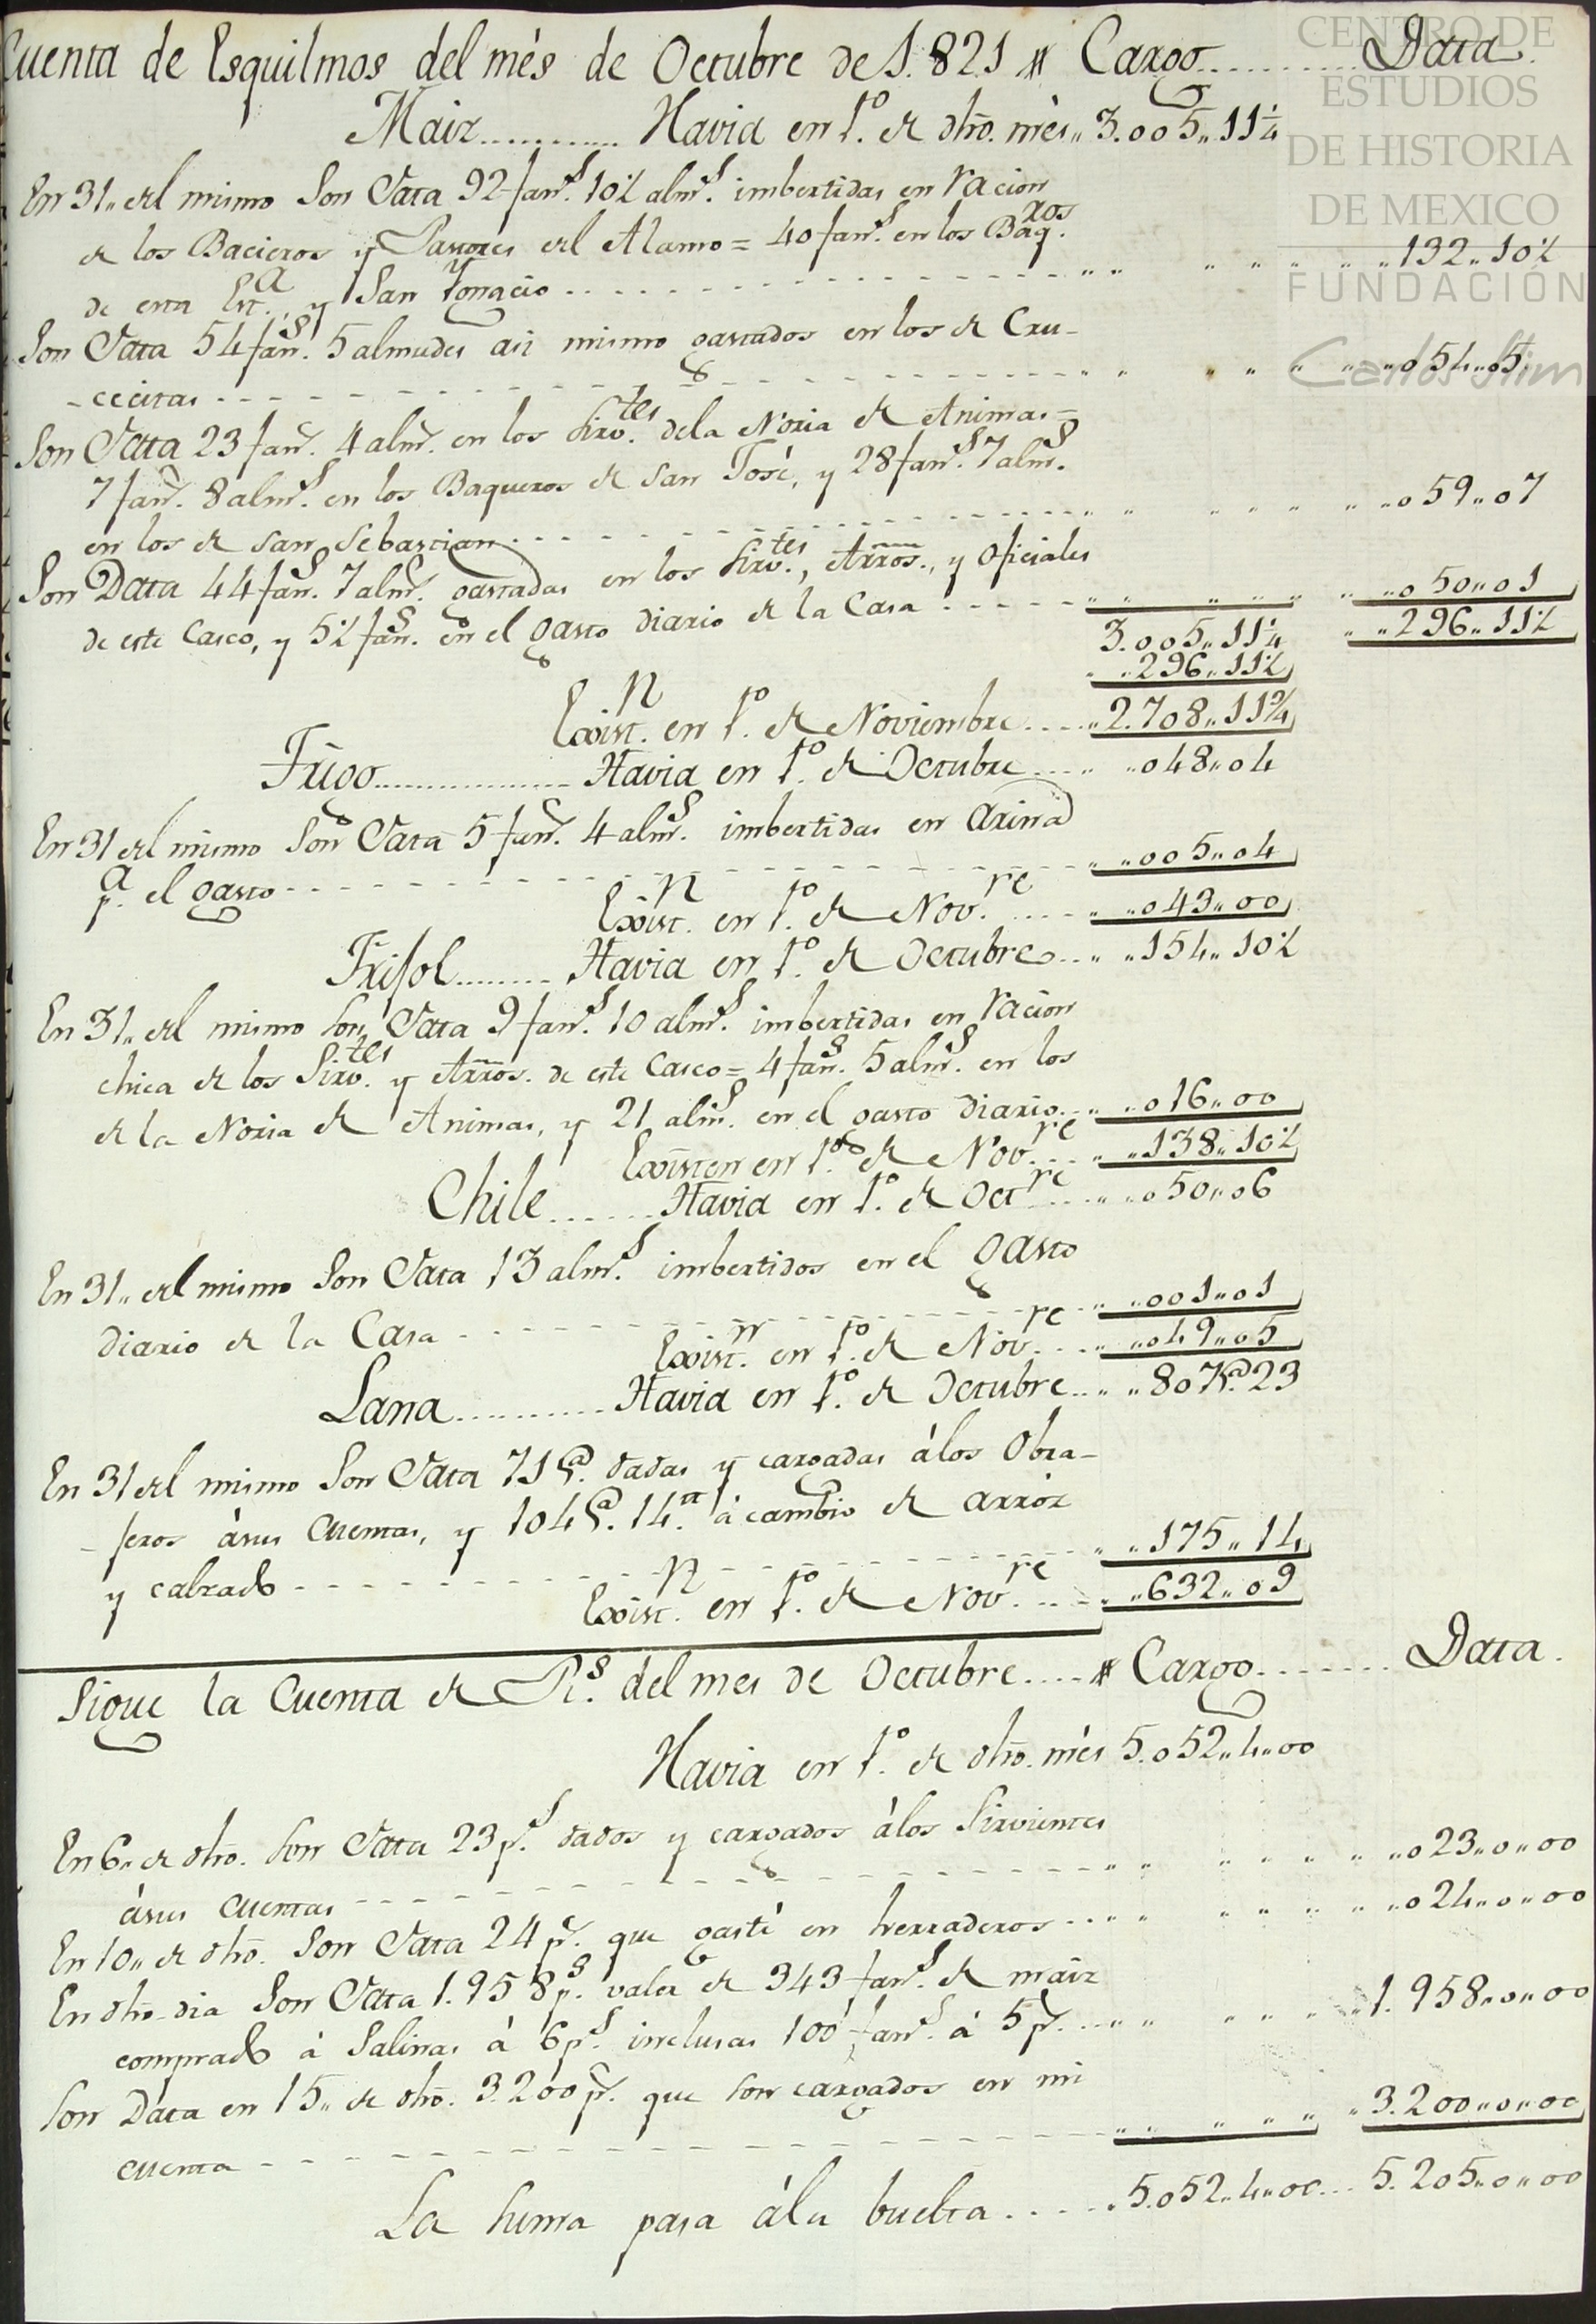 Cuenta de Esquilmos del més de Octubre de 1.821 # Cargo........... Data.
Maiz............ Havia en 1.º de dho. més,, 3.005,,11¼
En 31,, del mismo Son Data 92 fan.s 10½ alm.s imbertidas en racion
de los Bacieros y Pastores del Alamo = 40 fan.s en los Baq.ros
de esta Est.a, y San Ygnacio ,,132,,10½
Son Data 54 fan.s 5 almudes asi mismo gastados en los de Cru-
-cecitas ,,054,,05
Son Data 23 fan.s 4 alm.s en los Sirv.tes de la Noria de Animas =
7 fan.s 8 alm.s en los Baqueros de San José, y 28 fan.s 7 alm.s
en los de San Sebastian ,,059,,07
Son Data 44 fan.s 7 alm.s gastadas en los Sirv.tes, Arros., y Oficiales
de este Casco, y 5½ fan.s en el gasto diario de la Casa ,,050,,01
3.005,,11¼ ,,296,,11½
,,296,,11½
Exist.n en 1.º de Noviembre ,,2.708,,11¾
Trigo................ Havia en 1.º de Octubre ,,048,,04
En 31 del mismo Son Data 5 fan.s 4 alm.s imbertidas en arina
p.a el gasto ,,005,,04
Exist.n en 1.º de Nov.re ,,043,,00
Frisol........ Havia en 1.º de Octubre ,,154,,10½
En 31,, del mismo Son Data 9 fan.s 10 alm.s imbertidas en racion
chica de los Sirv.tes y Arros. de este Casco = 4 fan.s 5 alm.s en los
de la Noria de Animas, y 21 alm.s en el gasto diario ,,016,,00
Existen en 1.º de Nov.re ,,138,,10½
Chile...... Havia en 1.º de Oct.re ,,050,,06
En 31,, del mismo Son Data 13 alm.s imbertidos en el gasto
diario de la Casa ,,001,,01
Exist.n en 1.º de Nov.re ,,049,,05
Lana.......... Havia en 1.º de Octubre ,,807@.23
En 31 del mismo Son Data 71 @. dadas y cargadas á los Obra-
-jeros á sus Cuentas, y 104 @. 14.tt á cambio de arroz
y calzado ,,175,,14
Exist.n en 1.º de Nov.re ,,632,,09
Sigue la Cuenta de R.s del mes de Octubre.... # Cargo....... Data.
Havia en 1.º de dho. més 5.052,,4,,00
En 6,, de dho. Son Data 23 p.s dados y cargados á los Sirvientes
á sus cuentas ,,023,,0,,00
En 10,, de dho. Son Data 24 p.s que gasté en herraderos ,,024,,0,,00
En dho. dia Son Data 1.958 p.s valor de 343 fan.s de maiz
comprado á Salinas á 6 p.s inclusas 100 fan.s á 5 p.s ,,1.958,,0,,00
Son Data en 15,, de dho. 3.200 p.s que son cargados en mi
cuenta ,,3.200,,0,,00
La suma pasa á la buelta..... 5.052,,4,,00... 5.205,,0,,00
CENTRO DE
ESTUDIOS
DE HISTORIA
DE MEXICO
FUNDACIÓN
Carlos Slim